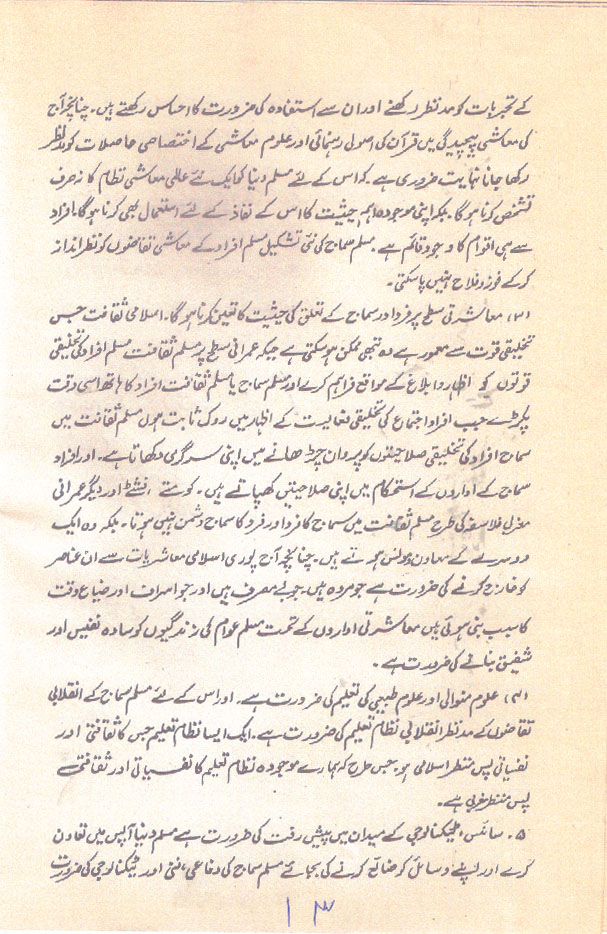 کے تجربات کو مدنظر رکھنے اور ان سے استفادہ کی ضرورت کا احساس رکھتے ہیں۔ چنانچہ آج
کی معاشی پیچیدگی میں قرآن کی اصولی رہنمائی اور علوم معاشی کے اختصاصی حاصلات کو مدنظر
رکھا جانا نہایت ضروری ہے۔ کہ اس کے لئے مسلم دنیا کو ایک نئے عالمی معاشی نظام کا نہ صرف
تشخص کرنا ہوگا۔ بلکہ اپنی موجودہ اہم حیثیت کا اس کے نفاذ کے لئے استعمال بھی کرنا ہوگا۔ افراد
سے ہی اقوام کا وجود قائم ہے۔ مسلم سماج کی نئی تشکیل مسلم افراد کے معاشی تقاضوں کو نظر انداز
کر کے فوز و فلاح نہیں پا سکتی۔
(۳) معاشرتی سطح پر فرد اور سماج کے تعلق کی حیثیت کا تعین کرنا ہوگا۔ اسلامی ثقافت جس
تخلیقی قوت سے معمور ہے وہ تبھی ممکن ہو سکتی ہے جبکہ عمرانی سطح پر مسلم ثقافت مسلم افراد کی تخلیقی
قوتوں کو اظہار و ابلاغ کے مواقع فراہم کرے اور مسلم سماج یا مسلم ثقافت افراد کا ہاتھ اسی وقت
پکڑے جب افراد اجتماع کی تخلیقی فعالیت کے اظہار میں روک ثابت ہوں مسلم ثقافت میں
سماج افراد کی تخلیقی صلاحیتوں کو پروان چڑھانے میں اپنی سرگرمی دکھاتا ہے۔ اور افراد
سماج کے اداروں کے استحکام میں اپنی صلاحیتیں کھپاتے ہیں۔ کومتے، نشٹے اور دیگر عمرانی
مغربی فلاسفہ کی طرح مسلم ثقافت میں سماج کا فرد اور فرد کا سماج دشمن نہیں ہوتا۔ بلکہ وہ ایک
دوسرے کے معاون و مونس ہوتے ہیں۔ چنانچہ آج پوری اسلامی معاشریات سے ان عناصر
کو خارج کرنے کی ضرورت ہے جو مردہ ہیں۔ جو بے مصرف ہیں اور جو اسراف اور ضیاع وقت
کا سبب بنی ہوئی ہیں معاشرتی اداروں کے تحت مسلم عوام کی زندگیوں کو سادہ نفیس اور
شفیق بنانے کی ضرورت ہے۔
(۴) علوم متوالی اور علوم طبیعی کی تعلیم کی ضرورت ہے۔ اور اس کے لئے مسلم سماج کے انقلابی
تقاضوں کے مدنظر انقلابی نظام تعلیم کی ضرورت ہے۔ ایک ایسا نظام تعلیم جس کا ثقافتی اور
نفسیاتی پس منظر اسلامی ہو۔ جس طرح کہ ہمارے موجودہ نظام تعلیم کا نفسیاتی اور ثقافتی
پس منظر مغربی ہے۔
۵۔ سائنس، ٹیکنالوجی کے میدان میں پیش رفت کی ضرورت ہے مسلم دنیا آپس میں تعاون
کرے اور اپنے وسائل کو ضائع کرنے کی بجائے مسلم سماج کی دفاعی، فنی اور ٹیکنالوجی کی ضرورت
۱۳